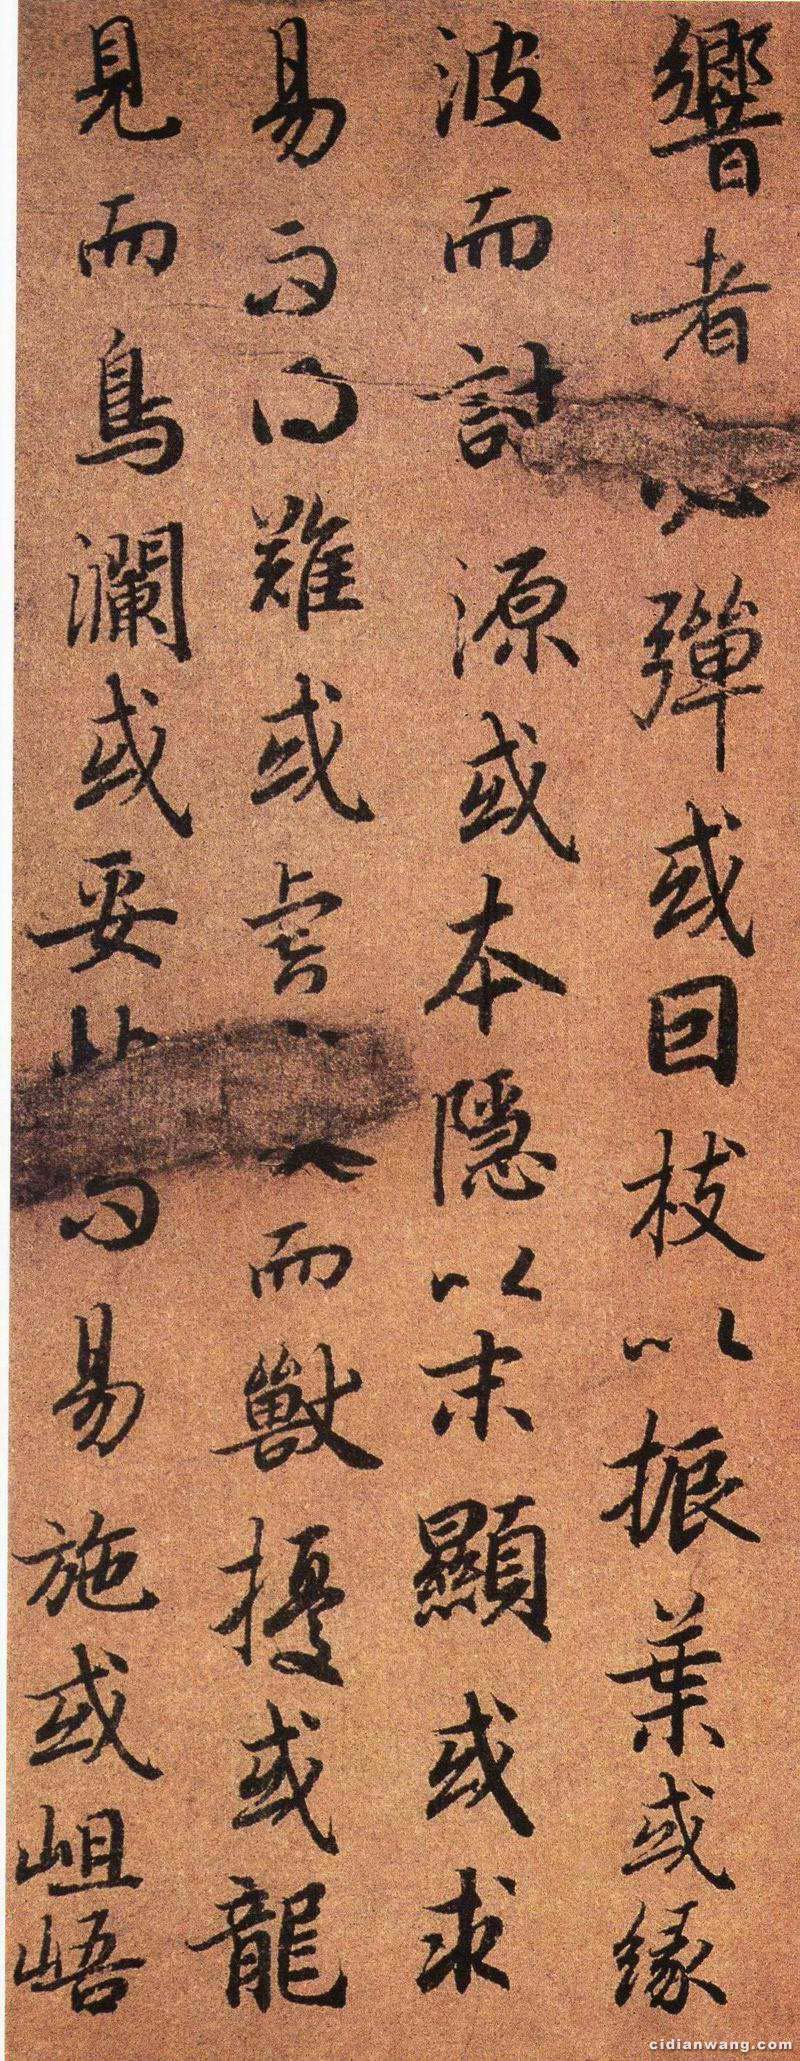 響者必彈或因枝以振葉或緣
波而討源或本隱以末顯或求
易而得難或虎變而獸擾或龍
見而鳥瀾或妥帖而易施或岨峿
cidianwang.com